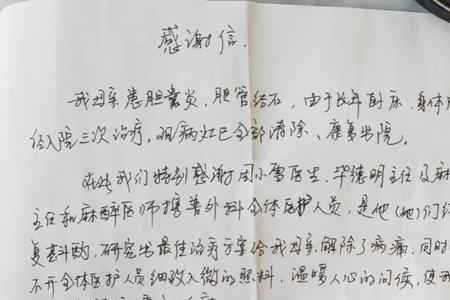 感谢信.
我母亲患胆囊炎、胆管结石, 由于长年卧床, 身体
经入院三次治疗, 现病灶已全部清除、康复出院。
在此我们特别感谢周小雪医生、毕德明主任及麻
主任和麻醉医师携普外科全体医护人员, 是他(她)们
复斟酌, 研究出最佳治疗方案给我母亲解除了病痛, 同时
不开全体医护人员细致入微的照料, 温暖人心的问候, 使我